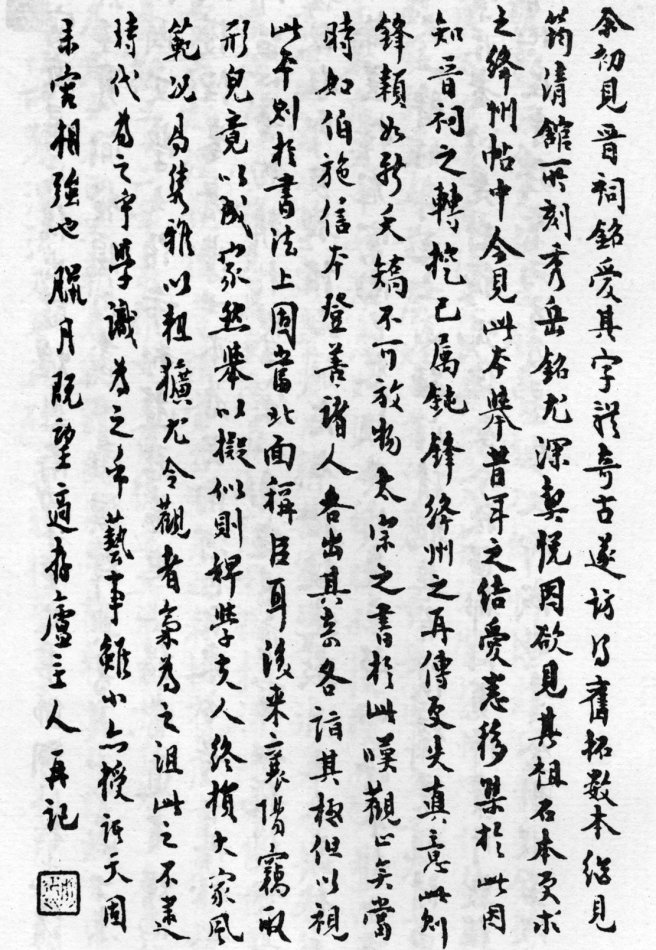 余初见晋祠銘爱其字體奇古遂访得舊拓數本继见
筠清館所刻秀岳銘尤深契悦因欲见其祖石本更求
之绛州帖中今见此本举昔年之结爱悉移集於此因
知晋祠之轉摸已属鈍鋒绛州之再傳更失真意此则
鋒颖如新夭矯不可放物太宗之書於此嘆觀止矣當
時如伯施信本登善諸人各出其奇各詣其極但以視
此本则於書法上固當北面稱臣耳後来襄陽竊取
形皃竟以成家然举以擬似则婢学夫人终損大家風
範况易隽雅以粗獷尤令觀者氣為之沮此之不逮
時代為之乎學識為之乎藝事雖小亦授諸天固
未容相强也臘月既望適存廬主人再記